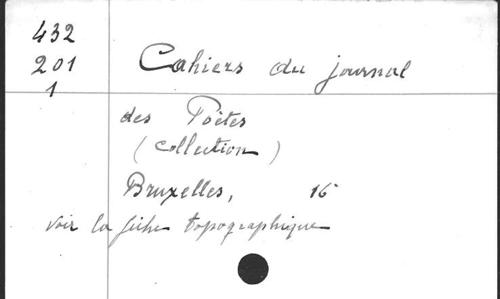 432
201
1
Cahiers du journal
des Poètes
(collection)
Bruxelles, 16°
voir la fiche topographique